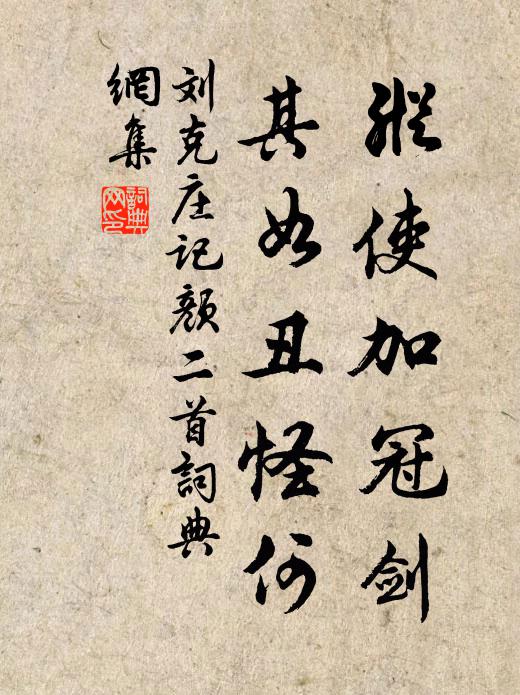 縱使加冠劍
其如丑怪何
刘克庄记颜二首詞典
網集
詞典網印